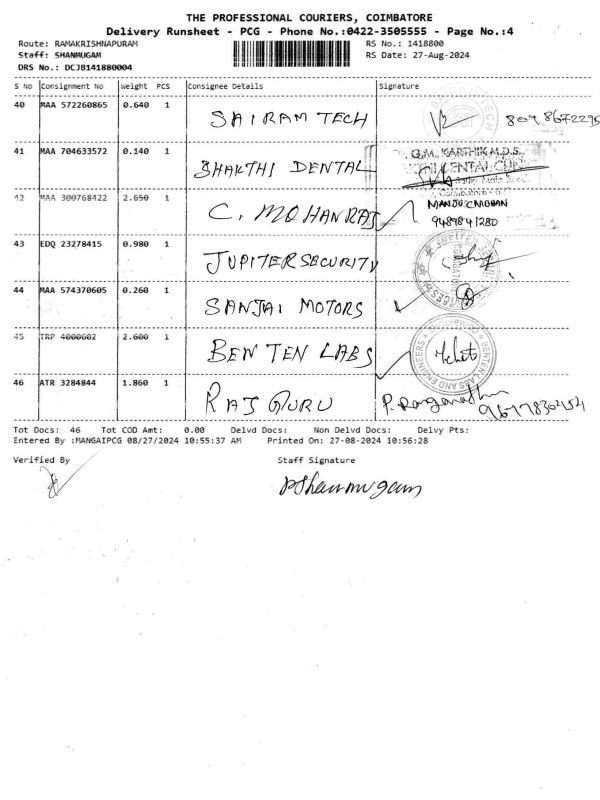 THE PROFESSIONAL COURIERS, COIMBATORE
Delivery Runsheet - PCG - Phone No.:0422-3505555 - Page No.:4
Route: RAMAKRISHNAPURAM RS No.: 1418800
Staff: SHANMUGAM RS Date: 27-Aug-2024
DRS No.: DCJB141880004
S No Consignment No Weight PCS Consignee Details Signature
40 MAA 572260865 0.640 1 SAIRAM TECH
41 MAA 704633572 0.140 1 SHAKTHI DENTAL
G.M. KARTHIK M.D.S.
42 MAA 300768422 2.650 1 C. MOHANRAJ MANJU CMOHAN
9489841280
43 EDQ 23278415 0.980 1 JUPITER SECURITY
44 MAA 574370605 0.260 1 SANJAI MOTORS
45 TRP 4000602 2.600 1 BEN TEN LABS
BENTEN LABS AND ENGINEERS
46 ATR 3284844 1.860 1 RAJ GURU P. Ranganathan
Tot Docs: 46 Tot COD Amt: 0.00 Delvd Docs: Non Delvd Docs: Delvy Pts:
Entered By :MANGAIPCG 08/27/2024 10:55:37 AM Printed On: 27-08-2024 10:56:28
Verified By Staff Signature
PShanmugam